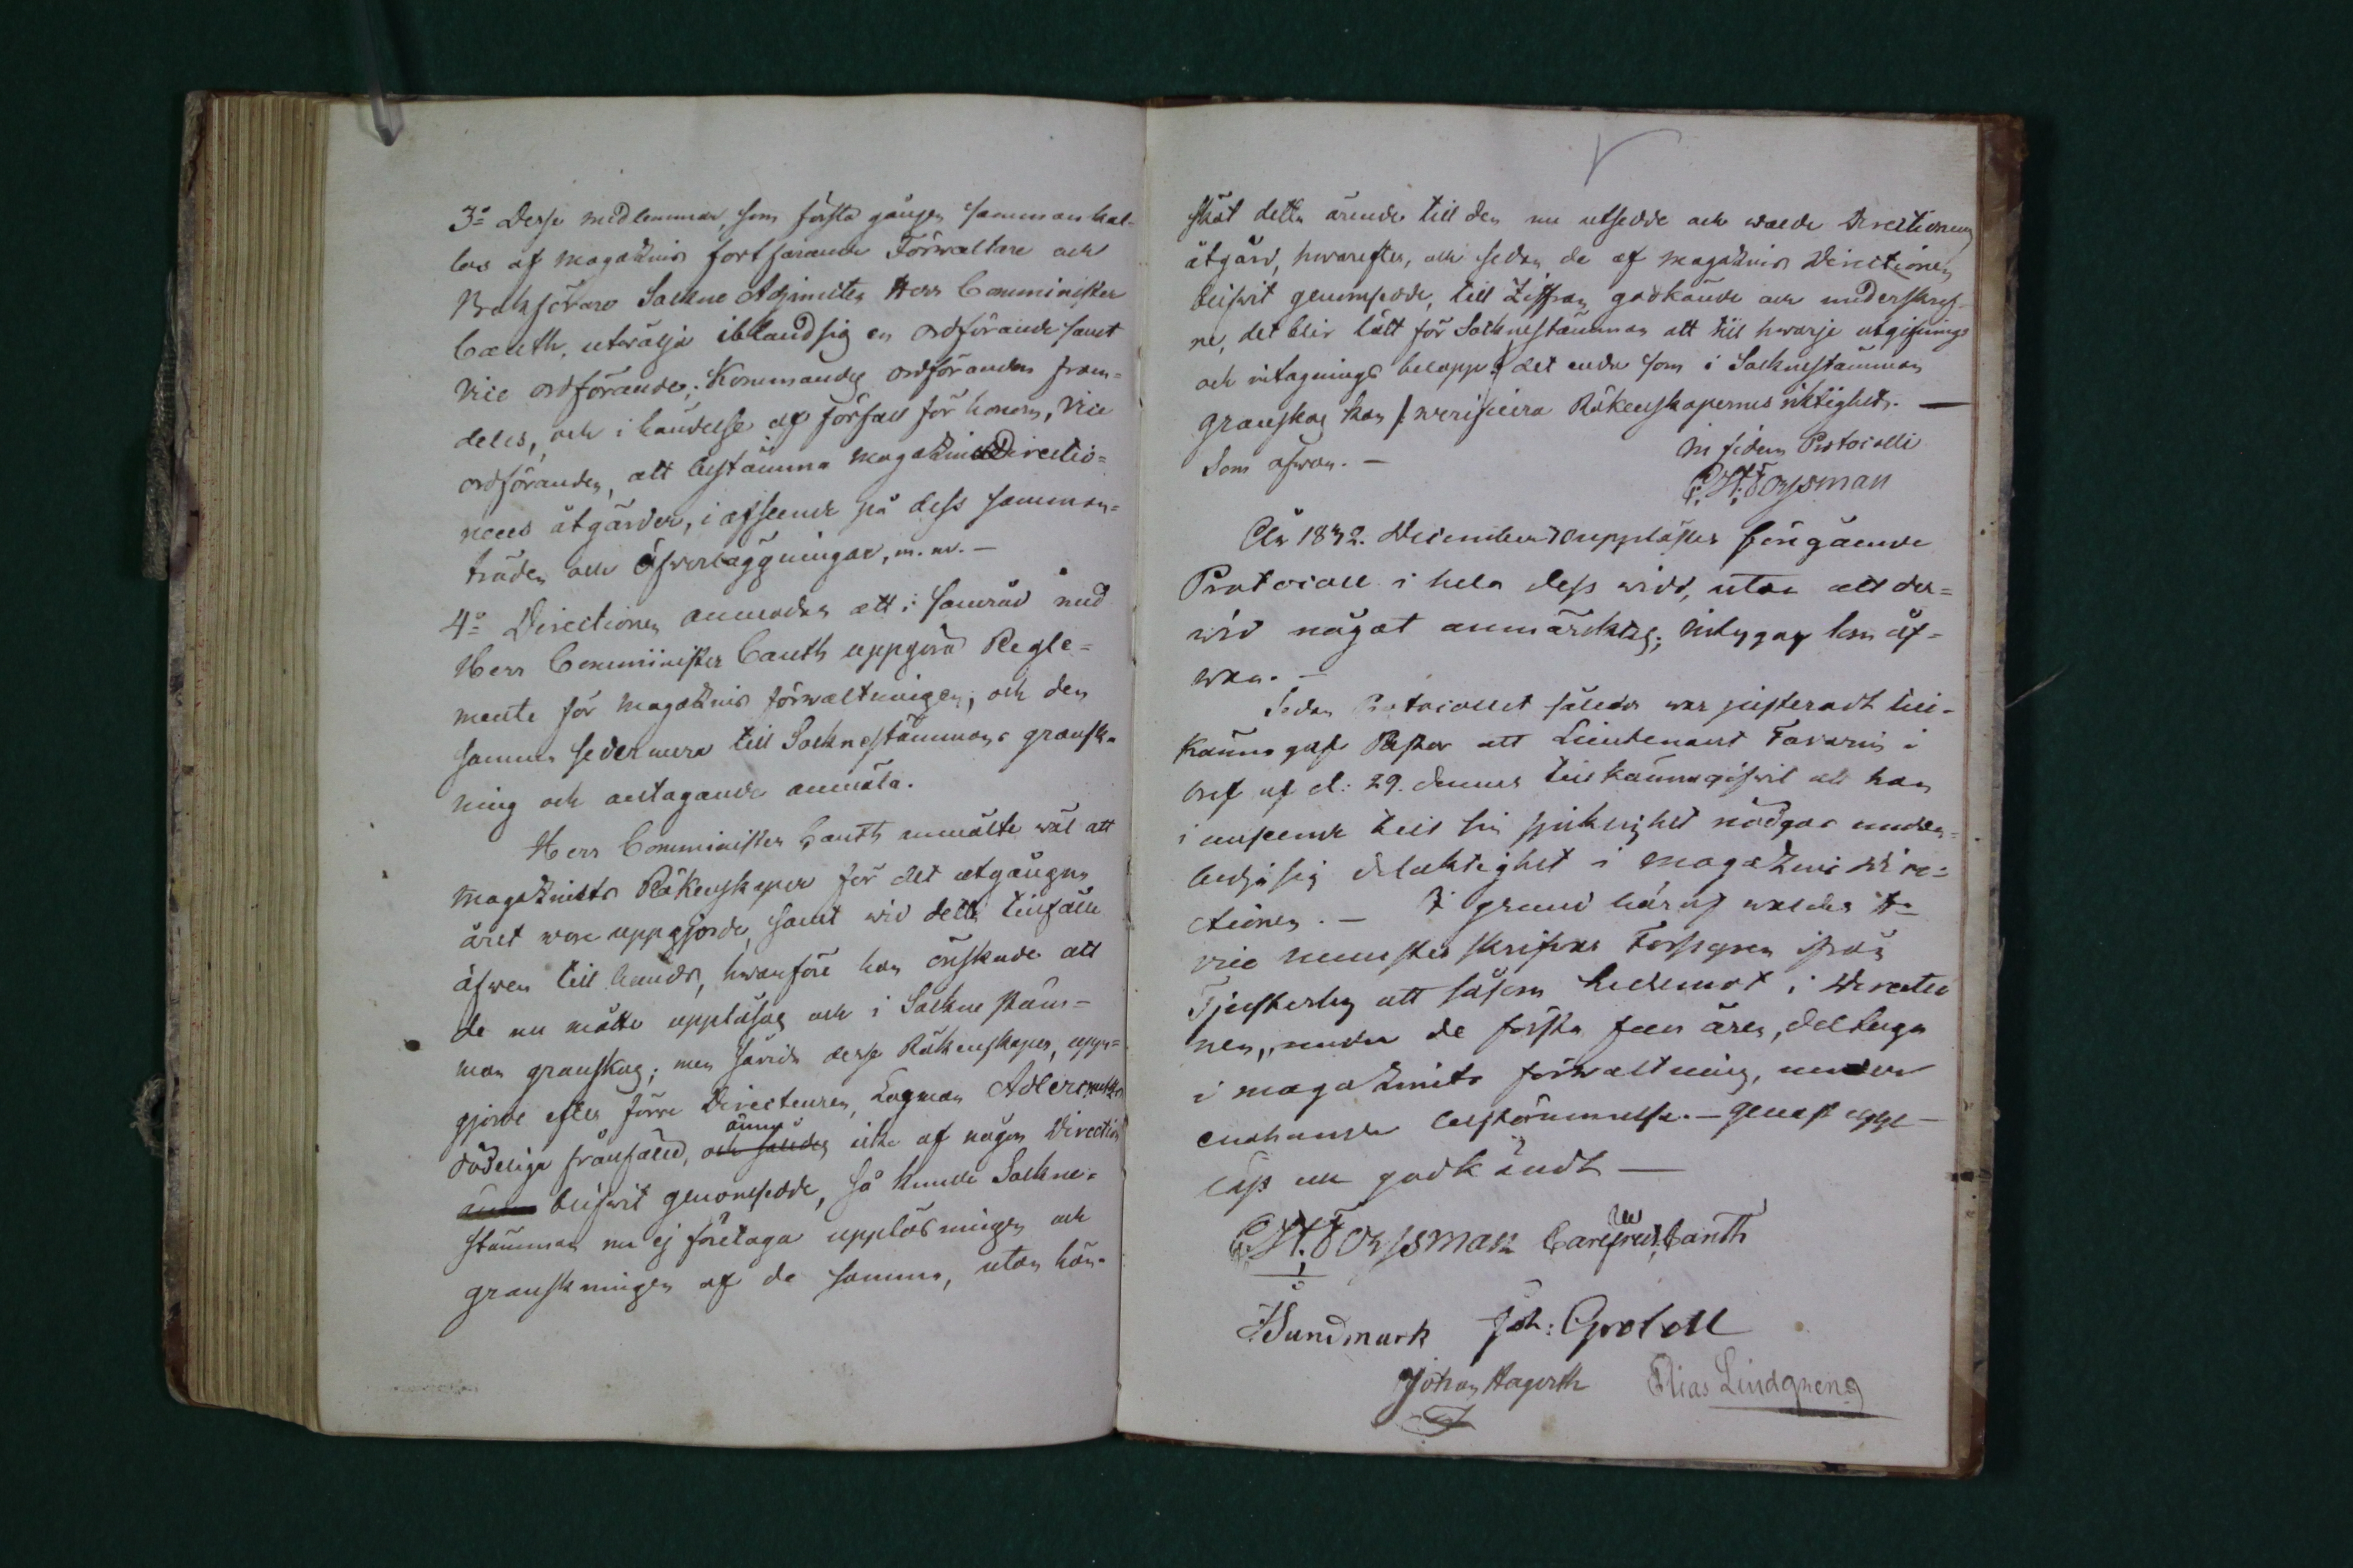 3o Desse medlemmar, som första gången samman kal-
las af magazins fortfarande Förwaltare och
Bokförare Sockne Adjuncten Herr Comminister
Canth, utwälja ibland sig en ordförande samt
Vice ordförande; Kommandes ordföranden fram-
deles, och i händelse af förfall för honom, Vice
ordföranden, att bestämma magazins Directio-
nens åtgärder, i afseende på dess samman-
träden och öfverläggningar, m. m. —
4o Directionen anmodas att i samråd med
Herr Comminister Canth uppgöra Regle-
mente för magazins förwaltningen, och den
samma sedermera till Socknestämmans gransk-
ning och antagande anmäla.
Herr Comminister Canth anmälte wäl att
magazinets Räkenskaper för det utgångna
året woro uppgjorde, samt wid detta tillfälle
äfwen till hands, hwarföre han önskade att
de nu måtte uppläsas och i Sockne stäm-
man granskas; men såvida desse Räkenskaper, upp-
gjorde efter förre Directeuren, Lagman Adlercreutz
dödeliga frånfälle, och således ännu icke af någon Direction
blifwit genomsedde, så kunde Sockne-
stämman nu ej företaga uppläsningen och
granskningen af de samma, utan hän-
sköt detta ärende till den nu utsedde och walde Directionens
åtgärd, hwarefter, och sedan de af magazins Directionen
blifwit genomsedde, till Ziffran godkände och underskref-
ne, det blir lätt för Socknestämman att till hwarje utgifnings
och intagnings belopp /: det enda som i Socknestämman
granskas kan :/ werificera Räkenskapernes riktighet. —
Som ofwan. — In fidem Protocolli
C. H. Forssman
År 1832. December 30 upplästes föregående
Protocoll i hela dess widd, utan att der-
wid något anmärktes; intygas som of-
wan. —
Sedan Protocollet således war justeradt till-
känna gaf Pastor att Lieutenant Favorin i
bref af d: 29. dennes tillkännagifwit att han
i anseende till sin sjuklighet nödgas undan-
bedja sig delaktighet i magazins Dire-
ctionen. — I grund häraf waldes Hr
vice mönster skrifware Forsgren ifrån
Tjusterby att såsom Ledamot i Directio
nen, under de första fem åren, deltaga
i magazinets förwaltning, under
enahanda bestämmelse. — Genast upp-
läst och godkändt —
C. H. Forssman Carl Fred. W Canth
J Sundmark Joh: Grotell
Johan Hagerth Elias Lindqveng